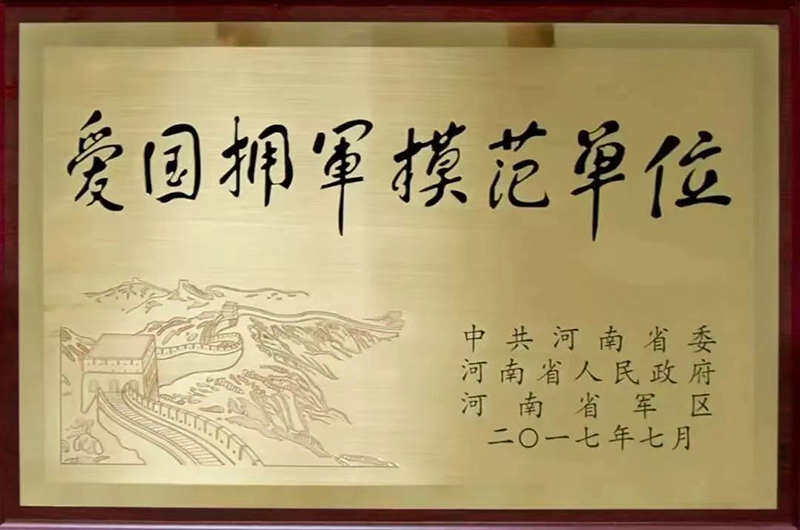 爱国拥軍模范单位
中共河南省委
河南省人民政府
河南省军区
二〇一七年七月